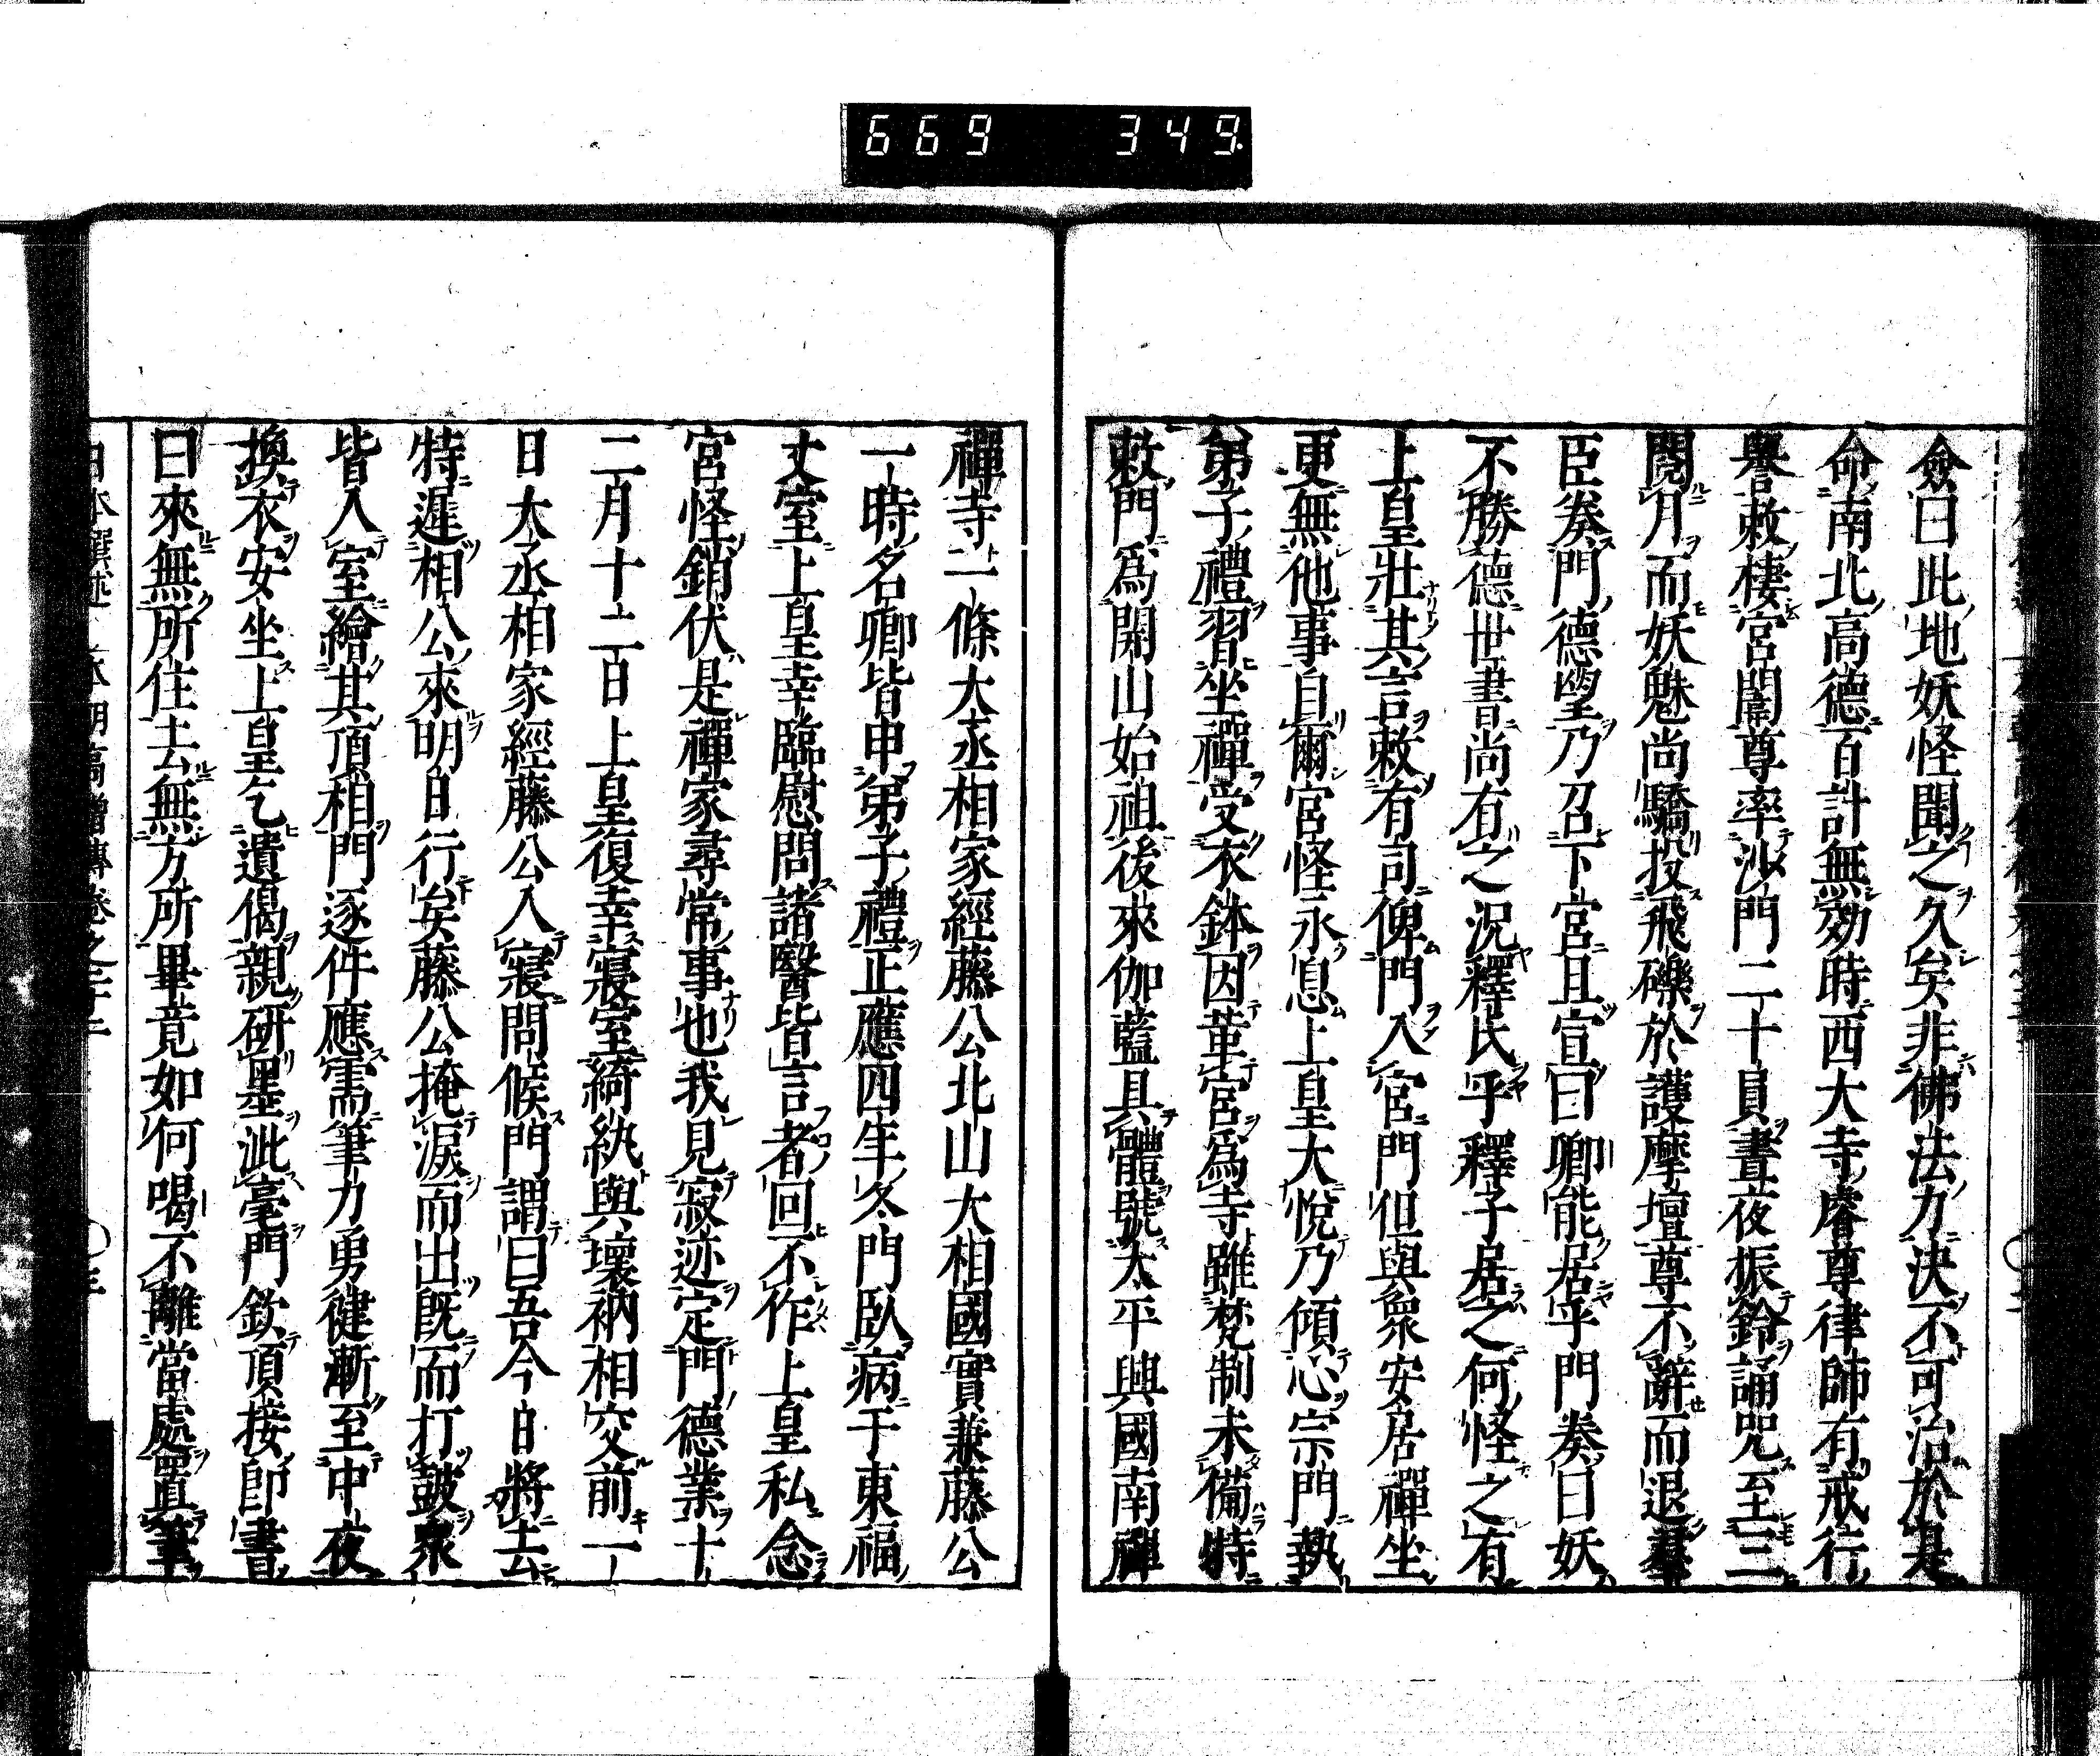 669 349
僉曰此地妖怪聞之久矣非佛法力決不可治於是
命南北高德百計無効時西大寺睿尊律師有戒行
譽敕棲宮闈尊率沙門二十員晝夜振鈴誦咒至三
閱月而妖魅尚驕投飛礫於護摩壇尊不辭而退羣
臣奏門德望乃召下宮且宣曰卿能居乎門奏曰妖
不勝德世書尚有之況釋氏乎釋子居之何怪之有
上皇壯其言敕有司俾門入宮門但與眾安居禪坐
更無他事自爾宮怪永息上皇大悅乃傾心宗門執
弟子禮習坐禪受衣鉢因革宮為寺雖梵制未備特
敕門為開山始祖後來伽藍具體號太平興國南禪
禪寺一條大丞相家經藤公北山大相國實兼藤公
一時名卿皆申弟子禮正應四年冬門臥病于東福
丈室上皇幸臨慰問諸醫皆言者回不作上皇私念
宮怪銷伏是禪家尋常事也我見寂迹定門德業十
二月十二日上皇復幸寢室綺紈與壞衲相交前一
日大丞相家經藤公入寢問候門謂曰吾今日將去
特遲相公來明日行矣藤公掩淚而出既而打鼓眾
皆入室繪其頂相門逐件應需筆力勇健漸至中夜
換衣安坐上皇乞遺偈親研墨泚毫門欽頂接即書
曰來無所住去無方所畢竟如何喝不離當處置筆
日本撰述 本朝高僧傳卷之二十二